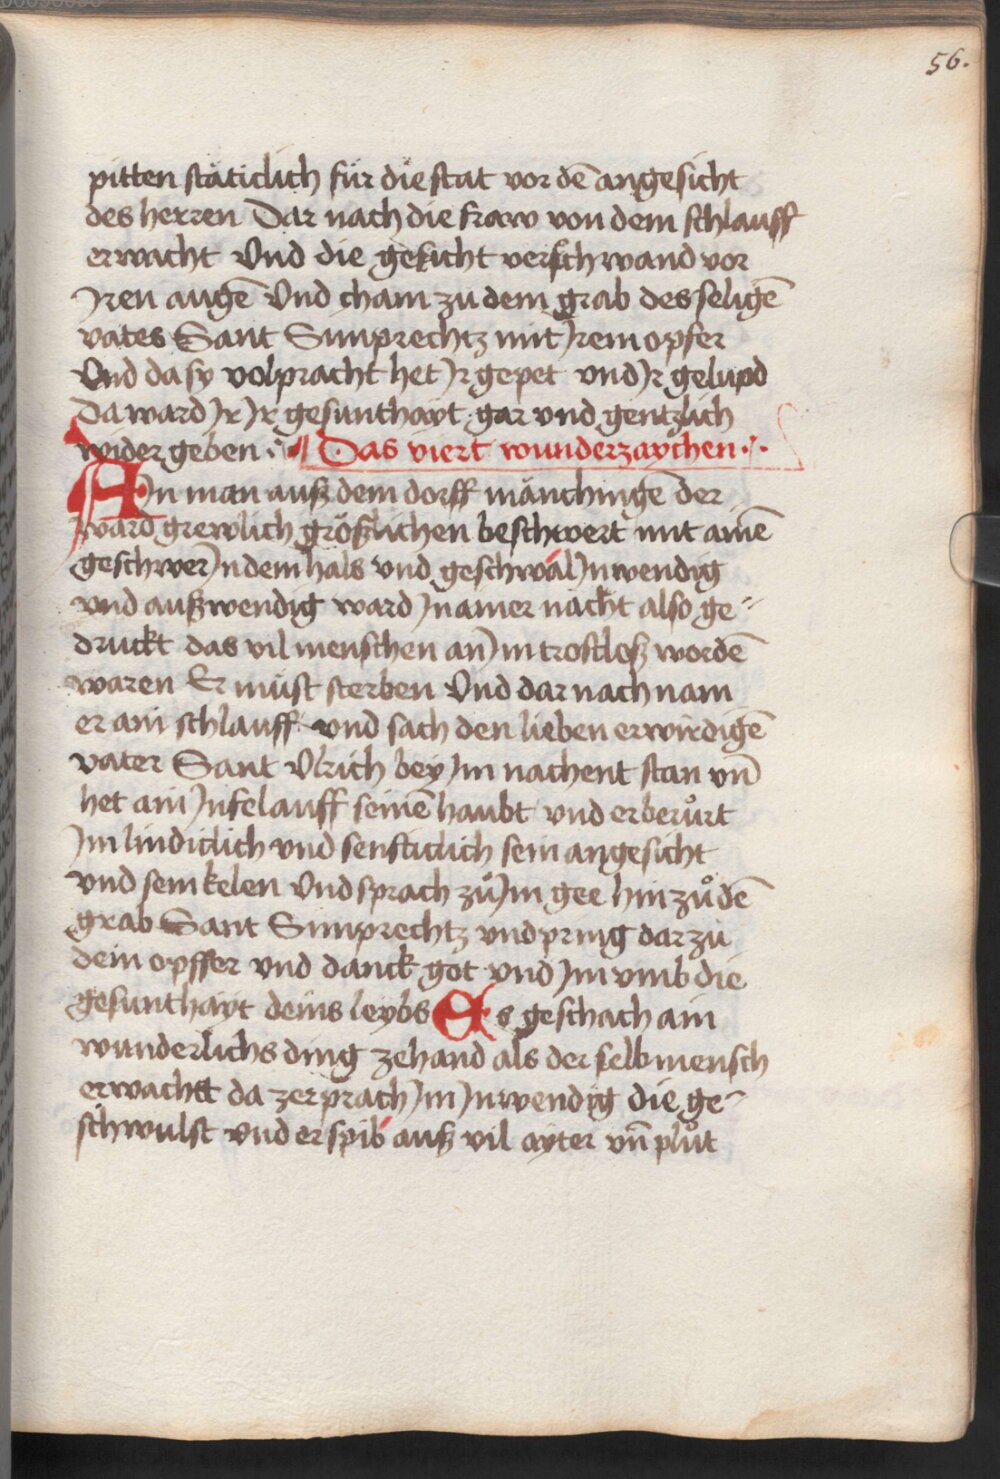 56.
pitten stäticlich für die stat vor dē angesicht
des herren Dar nach die fraw von dem schlauff
erwacht Vnd die gesicht verschwand vor
Jren augē Vnd cham zu dem grab des seligē
vates Sant Simprechtz mit Jrem opfer
Vnd da sy volpracht het Jr gepet vnd Jr gelupd
Da ward Jr Jr gesunthayt gar vnd gentzlich
wider geben. Das viert wunderzaychen.
Ain man ausz dem dorff mänchingē der
ward grewlich gröszlichen beschwert mit ainē
geschwer Jn dem hals vnd geschwal Jnwendig
vnd auszwendig ward Jn ainer nacht also ge-
druckt das vil menschen an Jm trostlosz wordē
waren Er müst sterben Vnd dar nach nam
er ain schlauff vnd sach den lieben erwirdigē
vater Sant Vlrich bey Jm nachent stan vn̄
het ain Jnfel auff seinē haubt vnd er berůrt
Jm lindiclich vnd senfticlich sein angesicht
vnd sein kelen Vnd sprach zů Jm gee hin zů dē
grab Sant Simprechtz vnd pring dar zu
dein opffer vnd danck got vnd Jm vmb die
gesunthayt deins leybs Es geschach ain
wunderlichs ding zehand als der selb mensch
erwacht da zerprach Jm Jnwendig die ge-
schwulst vnd er spib ausz vil ayter vn̄ plůt